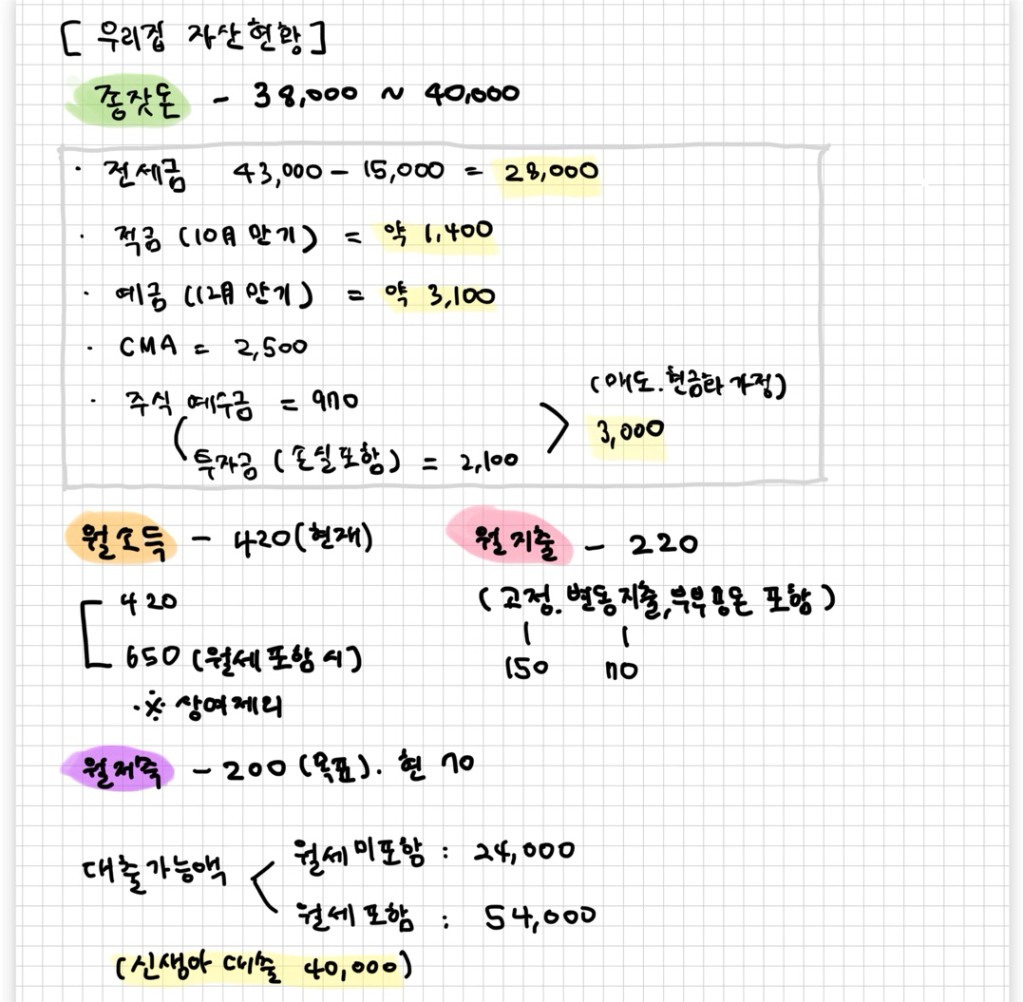 [ 우리집 자산현황 ]
종잣돈 - 38,000 ~ 40,000
· 전세금 43,000 - 15,000 = 28,000
· 적금 (10월 만기) = 약 1,400
· 예금 (12월 만기) = 약 3,100
· CMA = 2,500
(매도.현금화 가정)
· 주식 예수금 = 970
3,000
투자금 (손실포함) = 2,100
월소득 - 420(현재)
월지출 - 220
420
(고정.변동지출,부부용돈 포함)
650 (월세 포함 시)
150 70
※ 상여제외
월저축 - 200 (목표). 현 70
대출가능액
월세 미포함 : 24,000
월세 포함 : 54,000
(신생아 대출 40,000)